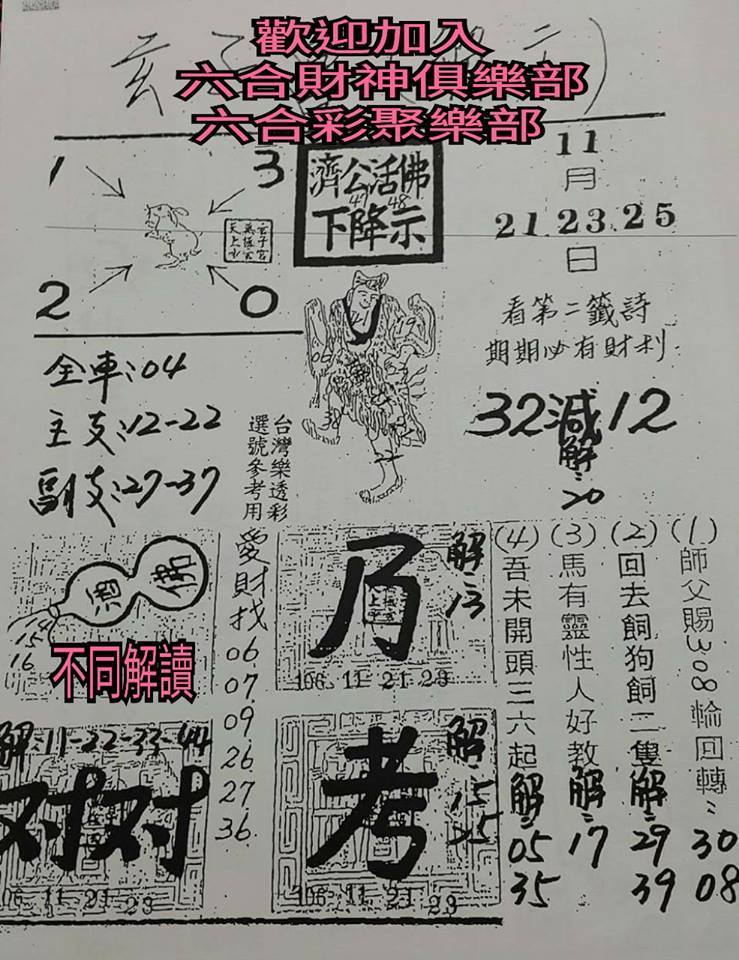 歡迎加入
六合財神俱樂部
六合彩聚樂部
1
3
2
0
濟公活佛
下降示
11
月
21.23.25
日
看第二籤詩
期期必有財利
32減12
解:20
全車:04
主支:12-22
副支:27-37
台灣樂透彩
選號參考用
愛財找
06.
07.
09
26.
27
36.
14
15
16
不同解讀
乃
解:13
106.11.21.23
解:11-22-33-44
对对
106.11.21.23
考
解:15
25
106.11.21.23
(1)師父賜308輪回轉:30
08
(2)回去飼狗飼二隻解:29
39
(3)馬有靈性人好教解:17
(4)吾未開頭三六起解:05
35